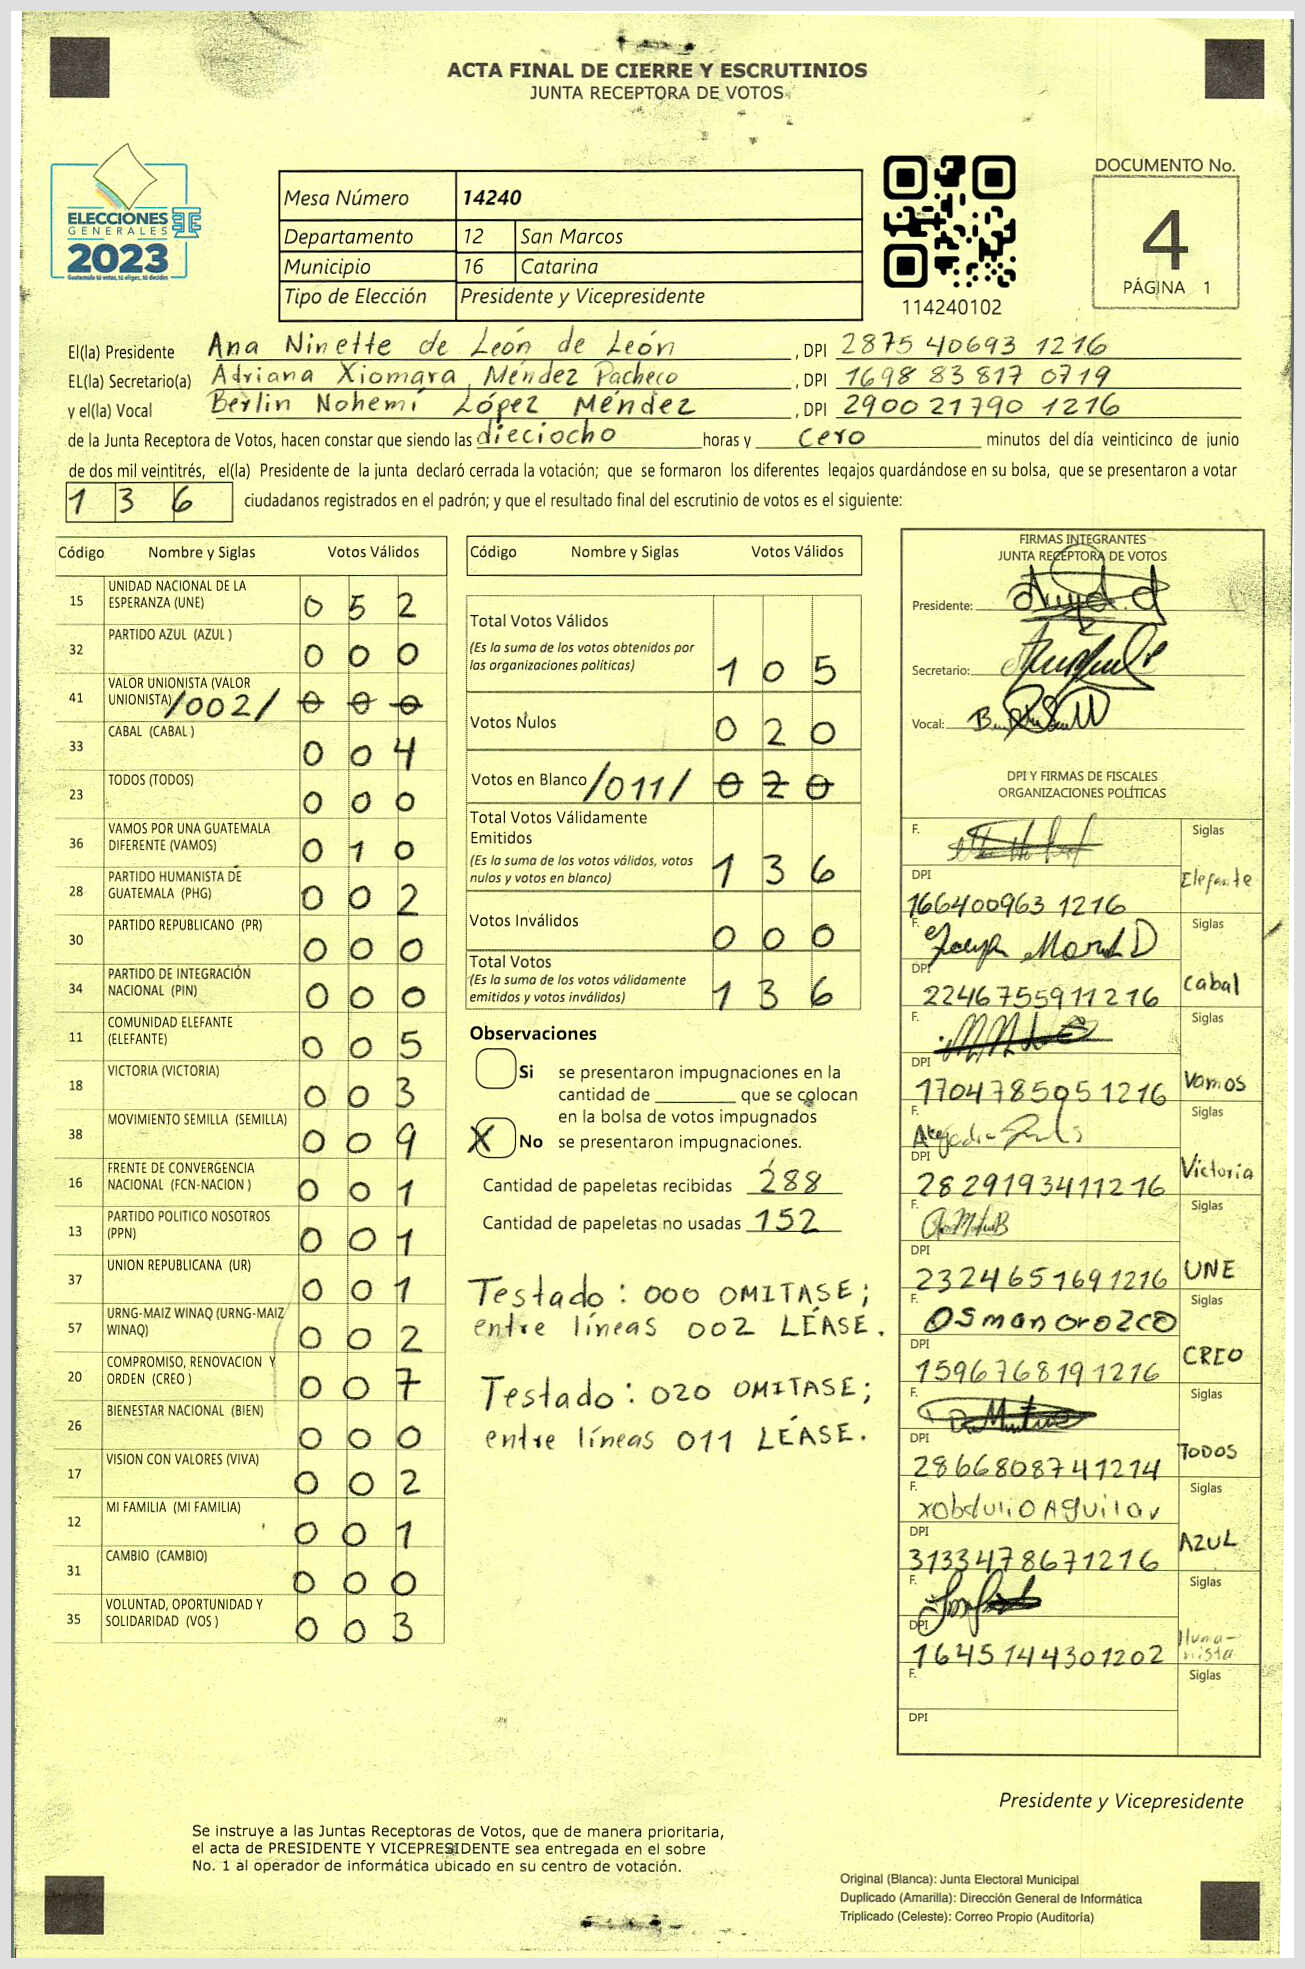 ACTA FINAL DE CIERRE Y ESCRUTINIOS
JUNTA RECEPTORA DE VOTOS
ELECCIONES
GENERALES
2023
Guatemala tú votas, tú eliges, tú decides
Mesa Número 14240
Departamento 12 San Marcos
Municipio 16 Catarina
Tipo de Elección Presidente y Vicepresidente
114240102
DOCUMENTO No.
4
PÁGINA 1
El(la) Presidente Ana Ninette de León de León, DPI 2875 40693 1216
EL(la) Secretario(a) Adriana Xiomara Méndez Pacheco, DPI 1698 83817 0719
y el(la) Vocal Berlin Nohemí López Méndez, DPI 2900 21790 1216
de la Junta Receptora de Votos, hacen constar que siendo las dieciocho horas y cero minutos del día veinticinco de junio
de dos mil veintitrés, el(la) Presidente de la junta declaró cerrada la votación; que se formaron los diferentes legajos guardándose en su bolsa, que se presentaron a votar
136 ciudadanos registrados en el padrón; y que el resultado final del escrutinio de votos es el siguiente:
Código Nombre y Siglas Votos Válidos
15 UNIDAD NACIONAL DE LA ESPERANZA (UNE) 0 5 2
32 PARTIDO AZUL (AZUL ) 0 0 0
41 VALOR UNIONISTA (VALOR UNIONISTA) /002/ 0 0 0
33 CABAL (CABAL ) 0 0 4
23 TODOS (TODOS) 0 0 0
36 VAMOS POR UNA GUATEMALA DIFERENTE (VAMOS) 0 1 0
28 PARTIDO HUMANISTA DE GUATEMALA (PHG) 0 0 2
30 PARTIDO REPUBLICANO (PR) 0 0 0
34 PARTIDO DE INTEGRACIÓN NACIONAL (PIN) 0 0 0
11 COMUNIDAD ELEFANTE (ELEFANTE) 0 0 5
18 VICTORIA (VICTORIA) 0 0 3
38 MOVIMIENTO SEMILLA (SEMILLA) 0 0 9
16 FRENTE DE CONVERGENCIA NACIONAL (FCN-NACION ) 0 0 1
13 PARTIDO POLITICO NOSOTROS (PPN) 0 0 1
37 UNION REPUBLICANA (UR) 0 0 1
57 URNG-MAIZ WINAQ (URNG-MAIZ WINAQ) 0 0 2
20 COMPROMISO, RENOVACION Y ORDEN (CREO ) 0 0 7
26 BIENESTAR NACIONAL (BIEN) 0 0 0
17 VISION CON VALORES (VIVA) 0 0 2
12 MI FAMILIA (MI FAMILIA) 0 0 1
31 CAMBIO (CAMBIO) 0 0 0
35 VOLUNTAD, OPORTUNIDAD Y SOLIDARIDAD (VOS ) 0 0 3
Código Nombre y Siglas Votos Válidos
Total Votos Válidos
(Es la suma de los votos obtenidos por
las organizaciones políticas) 1 0 5
Votos Nulos 0 2 0
Votos en Blanco /011/ 0 2 0
Total Votos Válidamente
Emitidos
(Es la suma de los votos válidos, votos
nulos y votos en blanco) 1 3 6
Votos Inválidos 0 0 0
Total Votos
(Es la suma de los votos válidamente
emitidos y votos inválidos) 1 3 6
Observaciones
Si se presentaron impugnaciones en la
cantidad de ________ que se colocan
en la bolsa de votos impugnados
X No se presentaron impugnaciones.
Cantidad de papeletas recibidas 288
Cantidad de papeletas no usadas 152
Testado: 000 OMITASE;
entre líneas 002 LÉASE.
Testado: 020 OMITASE;
entre líneas 011 LÉASE.
FIRMAS INTEGRANTES
JUNTA RECEPTORA DE VOTOS
Presidente:
Secretario:
Vocal:
DPI Y FIRMAS DE FISCALES
ORGANIZACIONES POLÍTICAS
F. Siglas
DPI Elefante
166400963 1216
F. Siglas
DPI Cabal
2246755911216
F. Siglas
DPI Vamos
1704785051216
F. Siglas
DPI Victoria
2829193411216
F. Siglas
DPI UNE
2324651691216
F. Osman Orozco Siglas
DPI CREO
1596768191216
F. Siglas
DPI TODOS
2866808741214
F. Aguilar Siglas
DPI AZUL
3133478671216
F. Siglas
DPI Humanista
1645144301202
F. Siglas
DPI
Presidente y Vicepresidente
Se instruye a las Juntas Receptoras de Votos, que de manera prioritaria,
el acta de PRESIDENTE Y VICEPRESIDENTE sea entregada en el sobre
No. 1 al operador de informática ubicado en su centro de votación.
Original (Blanca): Junta Electoral Municipal
Duplicado (Amarilla): Dirección General de Informática
Triplicado (Celeste): Correo Propio (Auditoría)